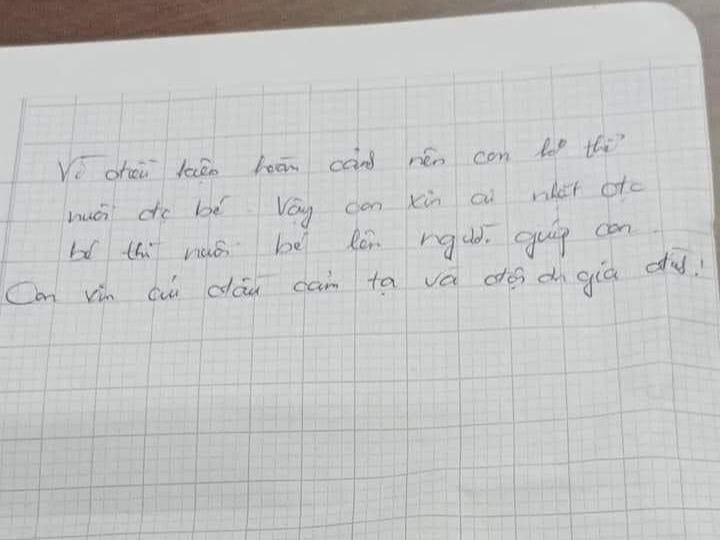 Vì điều kiện hoàn cảnh nên con ko thể
nuôi đc bé. Vậy con xin ai nhặt đtc
bé thì nuôi bé lên người giúp con.
Con xin cúi đầu cảm tạ và đội ơn gia đình!